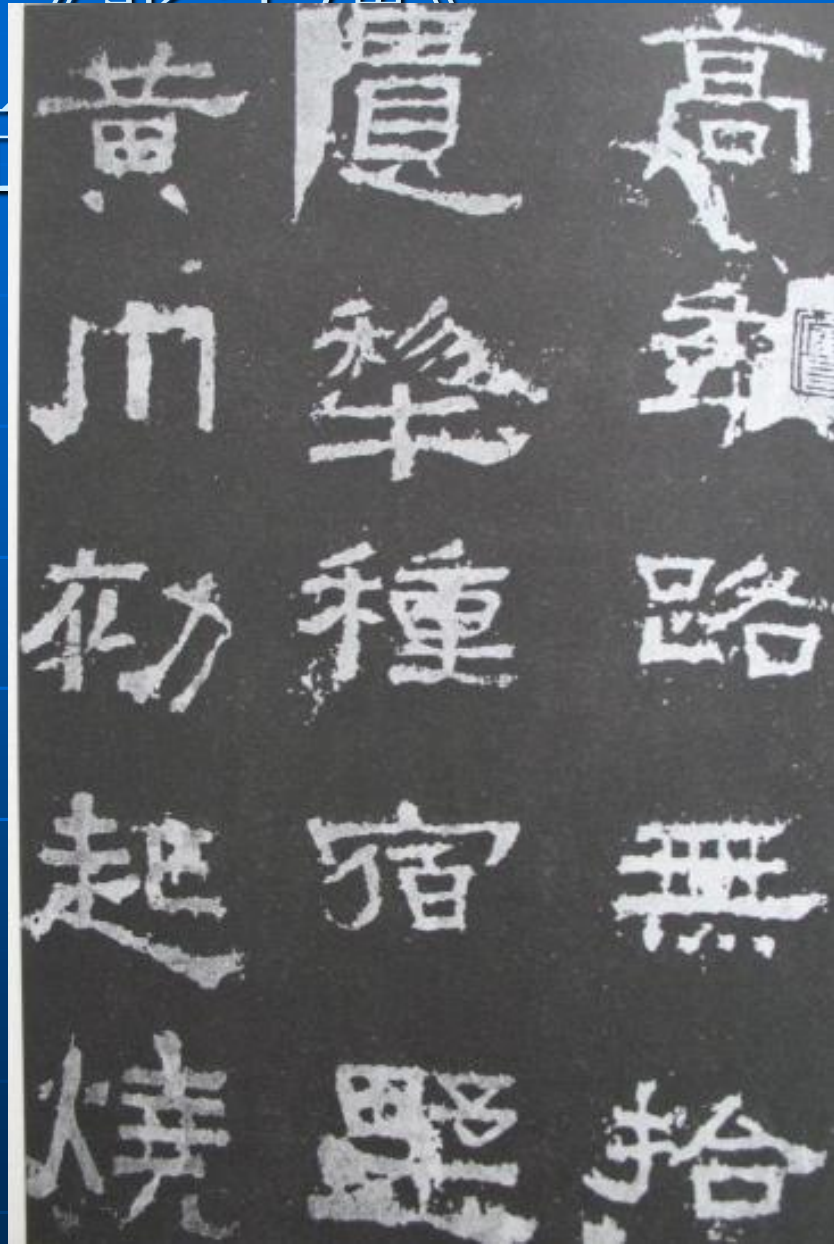 高年路無拾
遺犂種宿野
黄巾初起燒